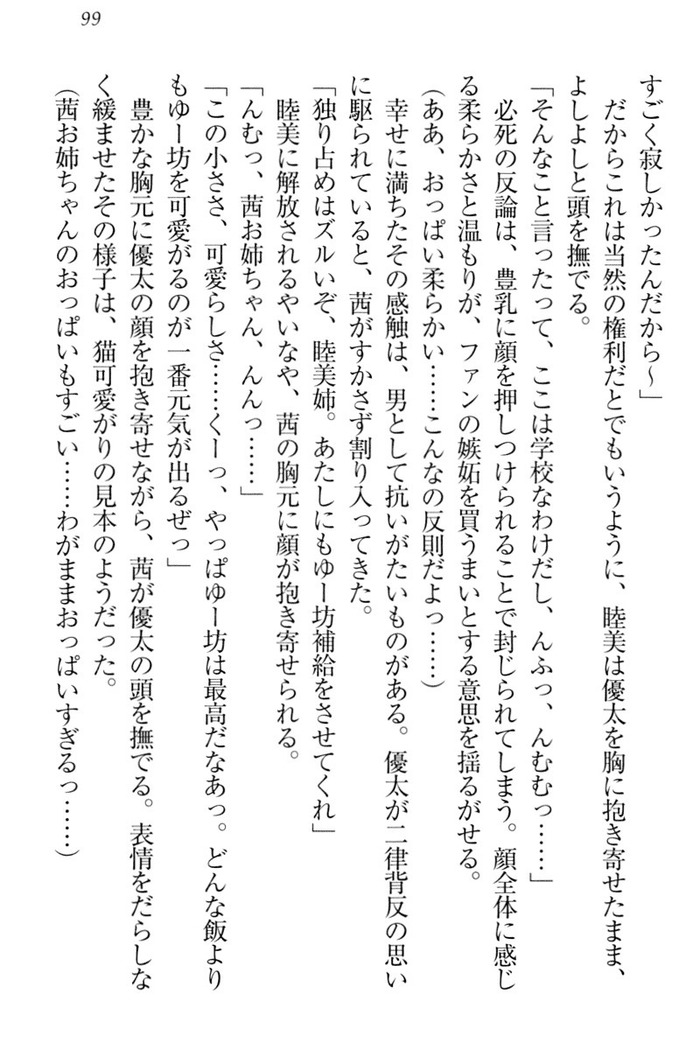 99
すごく寂しかったんだから～」
だからこれは当然の権利だとでもいうように、睦美は優太を胸に抱き寄せたまま、
よしよしと頭を撫でる。
「そんなこと言ったって、ここは学校なわけだし、んふっ、んむむっ……」
必死の反論は、豊乳に顔を押しつけられることで封じられてしまう。顔全体に感じ
る柔らかさと温もりが、ファンの嫉妬を買うまいとする意思を揺るがせる。
（ああ、おっぱい柔らかい……こんなの反則だよっ……）
幸せに満ちたその感触は、男として抗いがたいものがある。優太が二律背反の思い
に駆られていると、茜がすかさず割り入ってきた。
「独り占めはズルいぞ、睦美姉。あたしにもゆー坊補給をさせてくれ」
睦美に解放されるやいなや、茜の胸元に顔が抱き寄せられる。
「んむっ、茜お姉ちゃん、んんっ……」
「この小ささ、可愛らしさ……くーっ、やっぱゆー坊は最高だなあっ。どんな飯より
もゆー坊を可愛がるのが一番元気が出るぜっ」
豊かな胸元に優太の顔を抱き寄せながら、茜が優太の頭を撫でる。表情をだらしな
く緩ませたその様子は、猫可愛がりの見本のようだった。
（茜お姉ちゃんのおっぱいもすごい……わがままおっぱいすぎるっ……）